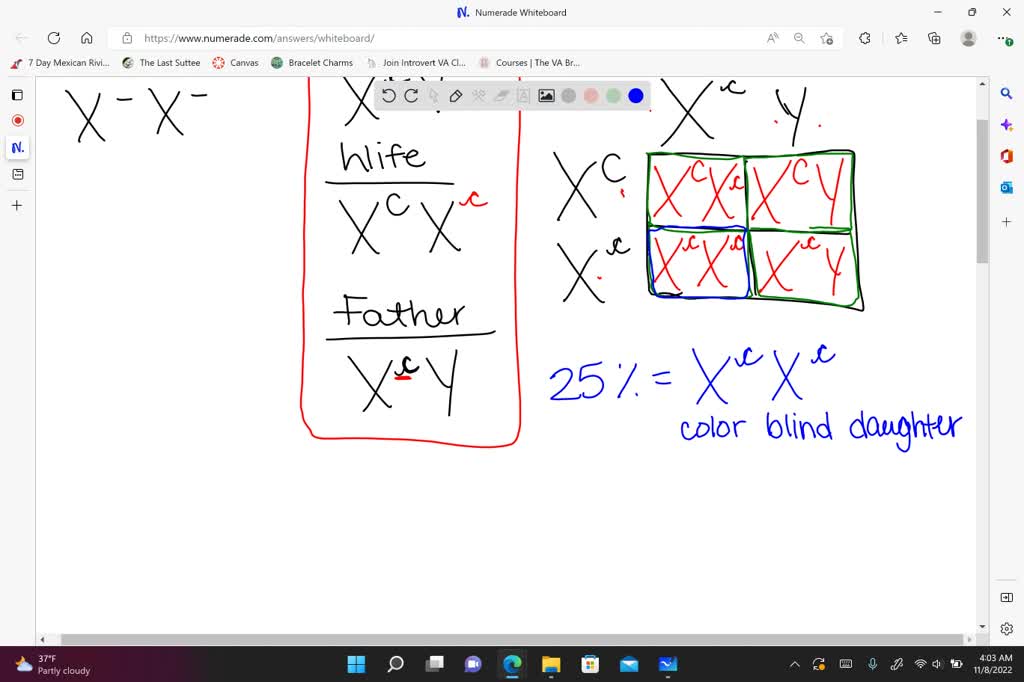 Numerade Whiteboard
https://www.numerade.com/answers/whiteboard/
7 Day Mexican Rivi...
The Last Suttee
Canvas
Bracelet Charms
Join Introvert VA Cl...
Courses | The VA Br...
X⁻ X⁻
hlife
X^C X^c
Father
X^c Y
X^c Y
X^C X^C X^c X^C Y
X^c X^c X^c X^c Y
25% = X^c X^c
color blind daughter
37°F
Partly cloudy
4:03 AM
11/8/2022